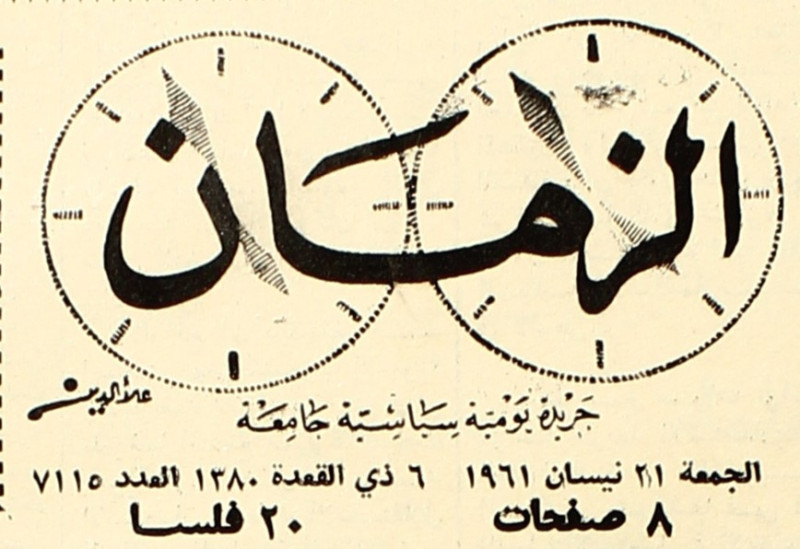 الزمان
علاء الدين
جريدة يومية سياسية جامعة
الجمعة ٢١ نيسان ١٩٦١ ٦ ذي القعدة ١٣٨٠ العدد ٧١١٥
٨ صفحات ٢٠ فلسا